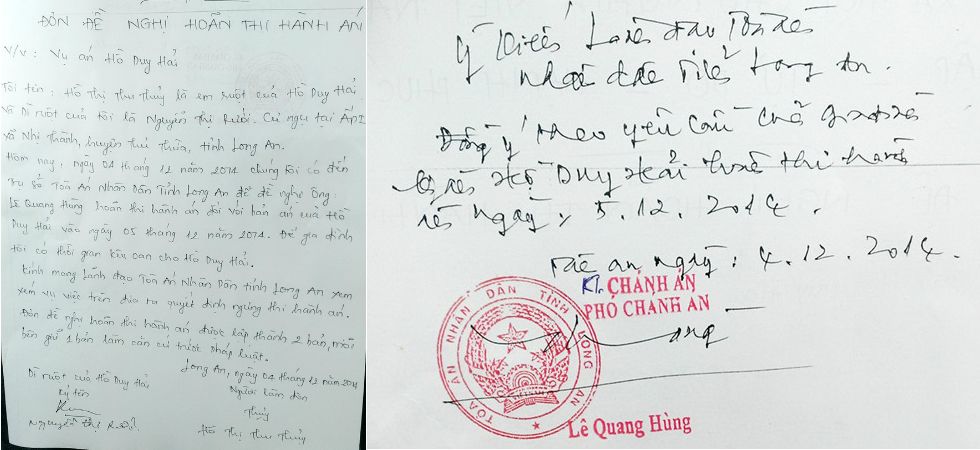 ĐƠN ĐỀ NGHỊ HOÃN THI HÀNH ÁN
V/v: Vụ án Hồ Duy Hải
Tôi tên: Hồ Thị Thu Thủy là em ruột của Hồ Duy Hải
Và Dì ruột của tôi là Nguyễn Thị Rưởi. Cư ngụ tại Ấp 1
xã Nhị Thành, huyện Thủ Thừa, tỉnh Long An.
Hôm nay, ngày 04 tháng 12 năm 2014 chúng tôi có đến
Trụ sở Toà Án Nhân Dân Tỉnh Long An để đề nghị Ông:
Lê Quang Hùng hoãn thi hành án đối với bản án của Hồ
Duy Hải vào ngày 05 tháng 12 năm 2014. Để gia đình
tôi có thời gian kêu oan cho Hồ Duy Hải.
Kính mong Lãnh đạo Toà Án Nhân Dân tỉnh Long An xem
xem vụ việc trên đưa ra quyết định ngừng thi hành án.
Đơn đề nghị hoãn thi hành án được lập thành 2 bản, mỗi
bên giữ 1 bản làm căn cứ trước pháp luật.
Long An, ngày 04 tháng 12 năm 2014
Dì ruột của Hồ Duy Hải
Người làm đơn
Ký tên
Thủy
Nguyễn Thị Rưởi
Hồ Thị Thu Thủy
Ý kiến Lãnh đạo Tòa án
nhân dân tỉnh Long An.
Đồng ý theo yêu cầu của gia đình
Hồ Duy Hải hoãn thi hành
án ngày: 5.12.2014.
án ngày: 4.12.2014.
KT. CHÁNH ÁN
PHÓ CHÁNH ÁN
TÒA ÁN NHÂN DÂN TỈNH LONG AN
Lê Quang Hùng